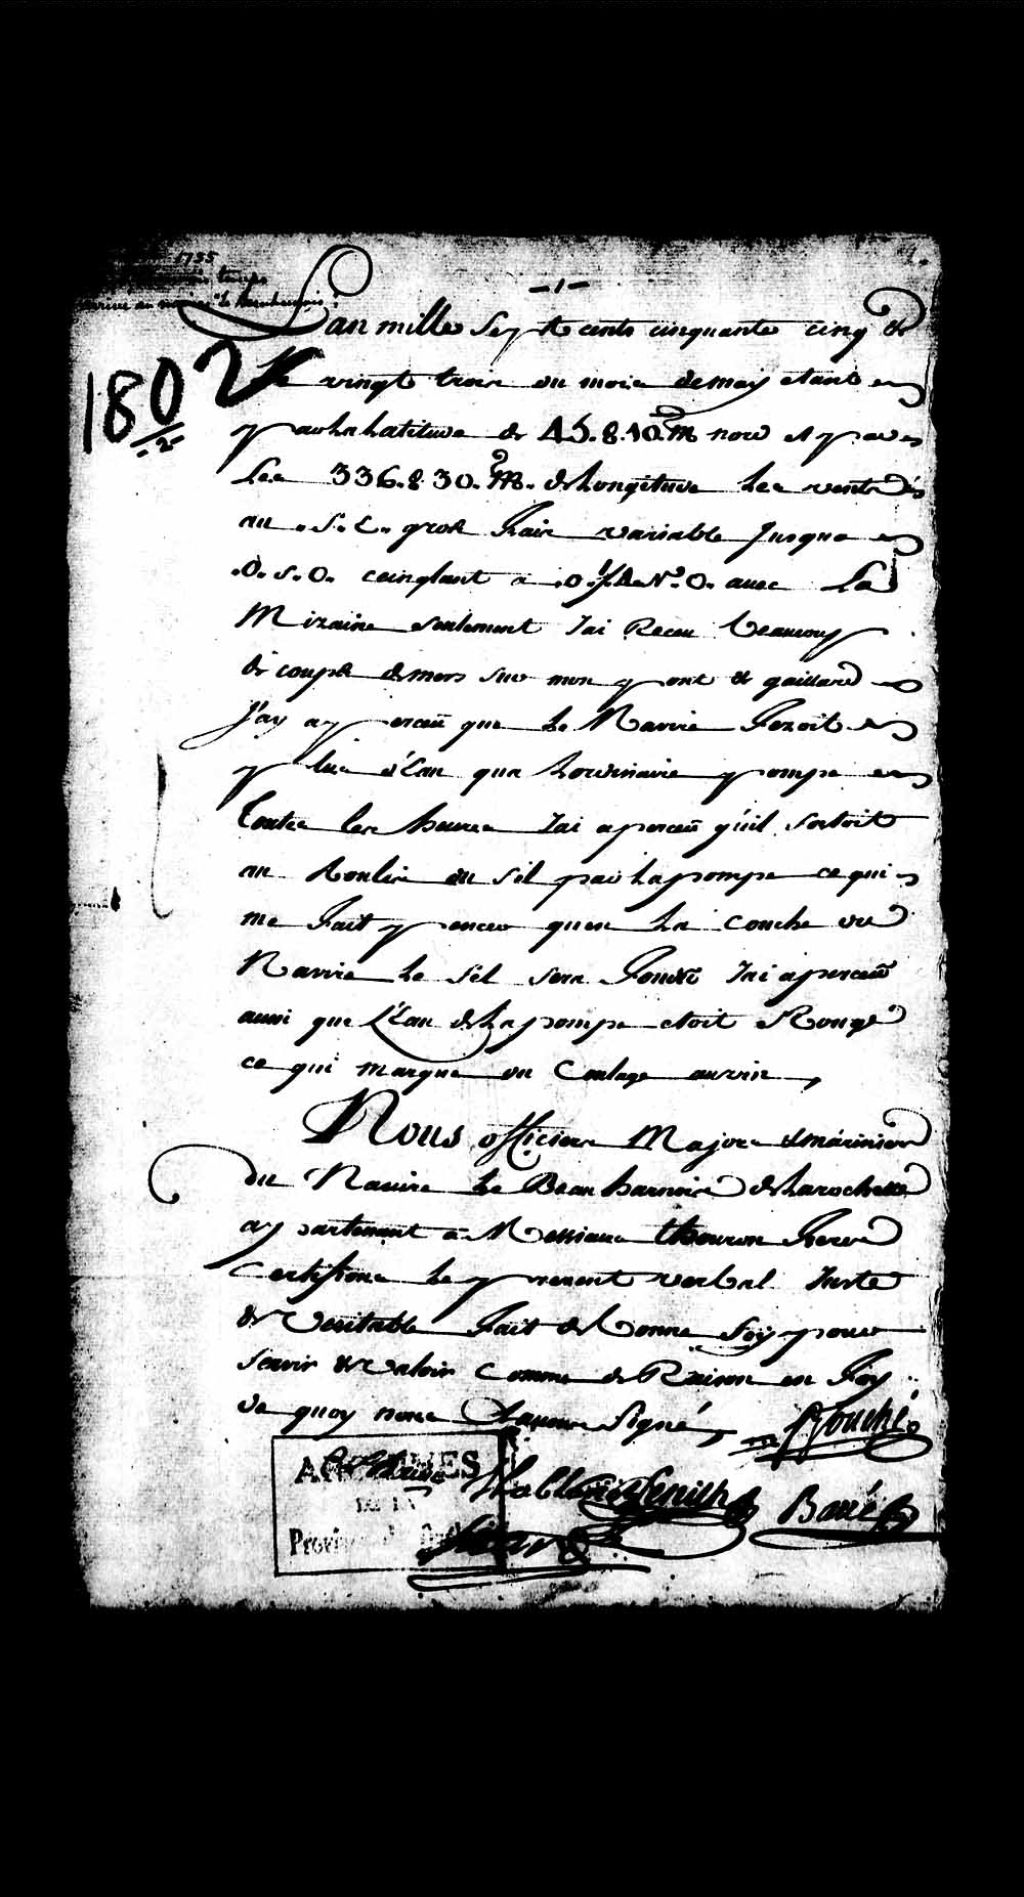 1735
-1-
Lan mille Sept cents cinquante cinq &
1802
-2-
le vingt trois du mois de may étant en
par la Latitude de 45.8.10.m nord et par
Les 336.8.30.m. de Longitude Les vents
au .S.E. gros frais variable Jusque
.O.S.O. ceinglant à .O.1/4.N.O. avec La
Mizaine seulement Jai Receu beaucoup
de coups de mers sur mon pont & gaillard
J'ay aperceu que le Navire Fezoit
plus d'Eau qua Lordinaire pompe
toutes les heures Jai aperceu quil sortoit
au Roulis du sel par la pompe ce qui
me fait pencer quen la couche du
Navire le sel sera Fondu Jai aperceu
aussi que L'Eau de la pompe etoit Rouge
ce qui marque du Coulage au vin
Nous officiers Majors & mariniers
du Navire le Beauharnois de Larochelle
apartenant à Messieurs Thouron Freres
Certifions le present verbal Juste
& Veritable Fait de bonne foy pour
servir & valoir comme de Raison en foy
de quoy nous avons Signé
Fouché
ARCHIVES
DE LA
Province de
Barré